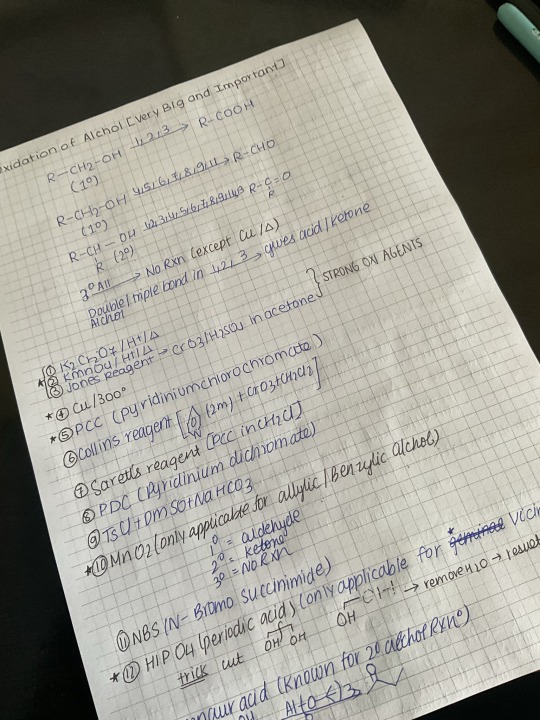 Oxidation of Alchol [Very Big and Important]
R-CH2-OH 1,2,3 → R-COOH
(1°)
R-CH2-OH 4,5,6,7,8,9,11 → R-CHO
(1°)
R-CH-OH 1,2,3,4,5,6,7,8,9,11 R-C=O
R (2°) R
3° All → No Rxn (except Cu/Δ)
Double/triple bond in 1,2,3 → gives acid/ketone
Alchol
} STRONG OXI AGENTS
① K2Cr2O7/H+/Δ
* ② KmnO4/H+/Δ
③ Jones Reagent → CrO3/H2SO4 in acetone
* ④ Cu/300°
* ⑤ PCC (Pyridiniumchlorochromate)
⑥ Collins reagent [N (2m) + CrO3+CH2Cl2]
⑦ Saretts reagent [PCC in CH2Cl]
⑧ PDC (Pyridinium dichromate)
⑨ TsCl+DmSO+NaHCO3
* ⑩ MnO2 (only applicable for allylic/Benzylic Alchol)
1° = aldehyde
2° = ketone
3° = No Rxn
⑪ NBS (N-Bromo succinimide)
* ⑫ HIPO4 (periodic acid) (only applicable for geminal * Vici
trick cut OH OH OH → remove H2O → result
naur acid (Known for 2° alechol Rxn°)
Al+O